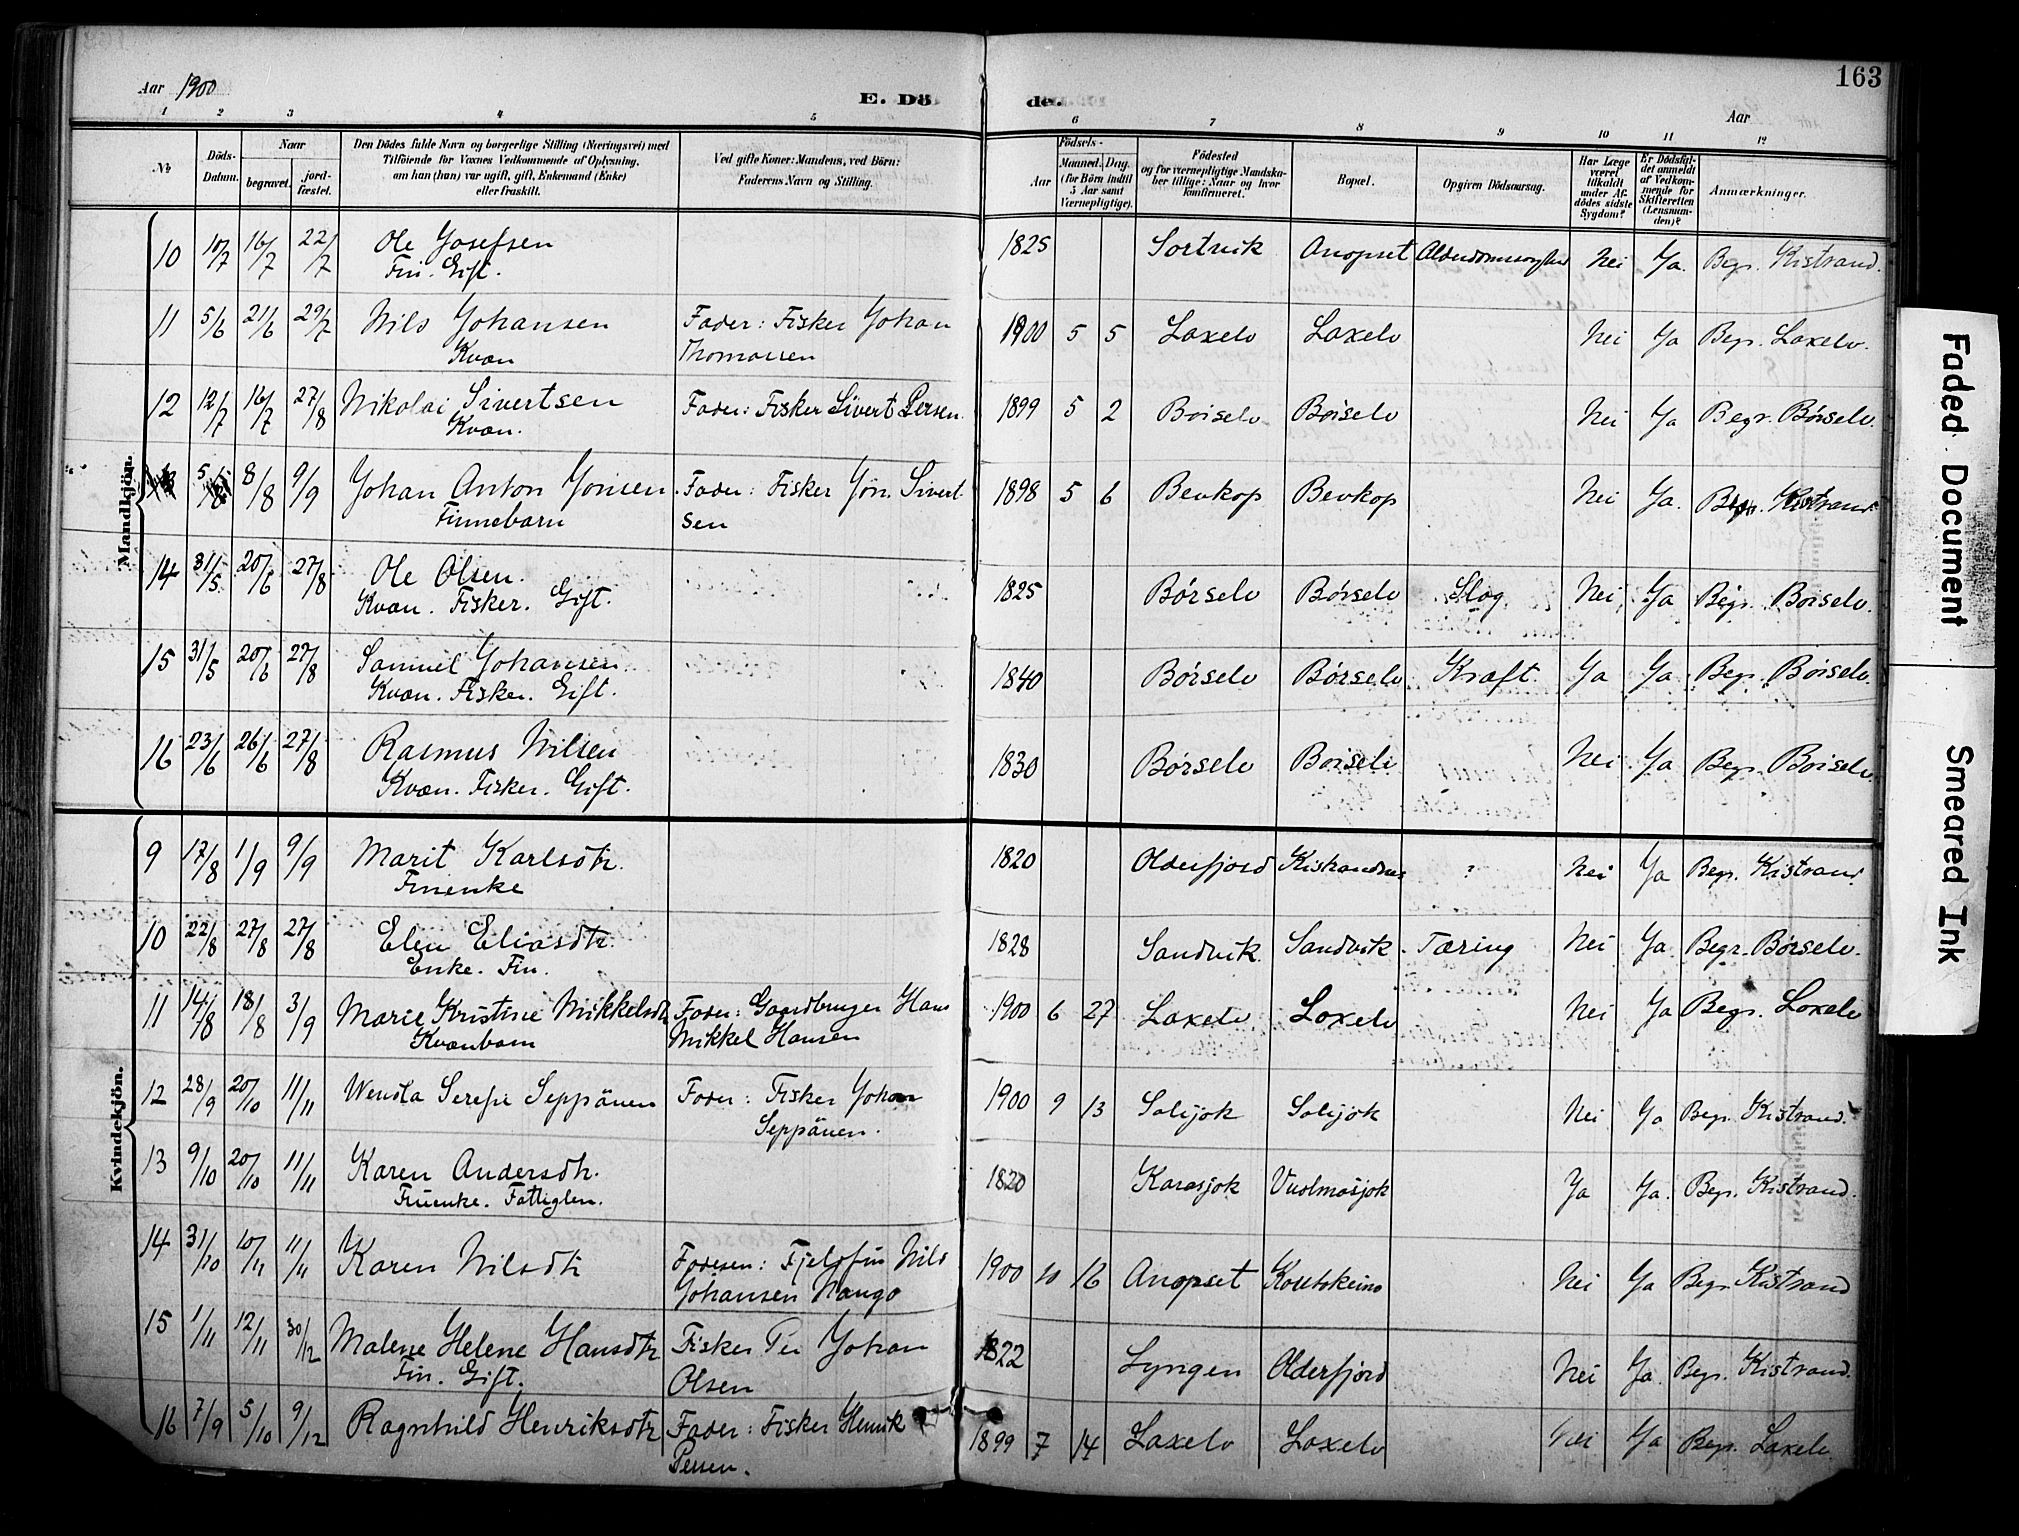 163
Aar 1900
E. Dö
de.
Aar
1 2 3 4 5 6 7 8 9 10 11 12
No
Döds-Datum.
Naar
begravet.
jord-fæstet.
Den Dödes fulde Navn og borgerlige Stilling (Næringsvei) med
Tilföiende for Voxnes Vedkommende af Oplysning,
om han (hun) var ugift, gift, Enkemand (Enke)
eller fraskilt.
Ved gifte Koner: Mandens, ved Börn:
Faderens Navn og Stilling.
Födsels-
Aar
Maaned. Dag.
(for Börn indtil
5 Aar samt
Værnepligtige).
Födested
og for værnepligtige Mandska-
ber tillige: Naar og hvor
konfirmeret.
Bopæl.
Opgiven Dödsaarsag.
Har Læge
været
tilkaldt
under Af-
dödes sidste
Sygdom?
Er Dödsfal-
det anmeldt
af Vedkom-
mende for
Skifteretten
(Lensman-
den)?
Anmærkninger.
Mandkjön.
10 10/7 16/7 22/7 Ole Josefsen 1825 Sortvik Anopset Nei Ja. Begr. Kistrand.
Fin. Gift.
11 5/6 21/6 29/7 Nils Johansen Fader: Fisker Johan 1900 5 5 Laxelv Laxelv Nei Ja Begr. Laxelv.
Kvæn Thomassen
12 12/7 16/7 27/8 Nikolai Sivertsen Fader: Fisker Sivert Persen. 1899 5 2 Børselv Børselv Nei Ja Begr. Børselv.
Kvæn.
5/8 8/8 9/9 Johan Anton Jonsen. Fader: Fisker Jon. Sivert 1898 5 6 Bevkop Bevkop Nei Ja. Begr. Kistrand
Finnebarn sen
14 31/5 20/6 27/8 Ole Olsen. 1825 Børselv Børselv Slag. Nei Ja Begr. Børselv.
Kvæn. Fisker. Gift.
15 31/5 20/6 27/8 Samuel Johansen 1840 Børselv Børselv Kræft. Ja Ja Begr. Børselv.
Kvæn. Fisker. Gift.
16 23/6 26/6 27/8 Rasmus Nilsen 1830 Børselv Børselv Nei Ja Begr. Børselv.
Kvæn. Fisker. Gift.
Kvindekjön.
9 17/8 1/9 9/9 Marit Karlsdtr. 1820 Olderfjord Kistrandnes ? Nei Ja Begr. Kistrand
Finenke
10 22/8 27/8 27/8 Elen Eliasdtr. 1828 Sandvik Sandvik Tæring Nei Ja. Begr. Børselv.
Enke. Fin.
11 14/8 18/8 3/9 Marie Kristine Mikkelsdtr Fader: Gaardbruger Hans 1900 6 27 Laxelv Laxelv Nei Ja Begr. Laxelv
Kvænbarn Mikkel Hansen
12 28/9 20/10 11/11 Wendla Serefie Seppänen Fader: Fisker Johan 1900 9 13 Solijok Solijok Nei Ja Begr. Kistrand.
Seppänen.
13 9/10 20/10 11/11 Karen Andersdtr. 1820 Karasjok Vuolmasjok Ja Ja. Begr. Kistrand.
Finenke. Fattiglem.
14 31/10 10/11 11/11 Karen Nilsdtr Faderen: Fjeldfin Nils 1900 10 16 Anopset Koutokeino Nei Ja Begr. Kistrand
Johansen Hango
15 1/11 12/11 30/12 Malene Helene Hansdtr Fisker Per Johan 1822 Lyngen Olderfjord Nei Ja. Begr. Kistrand.
Fin. Gift. Olsen
16 7/9 5/10 9/12 Ragnhild Henriksdtr Fader: Fisker Henrik 1899 7 14 Laxelv Laxelv Nei Ja Begr. Laxelv.
Persen.
Faded Document
Smeared Ink